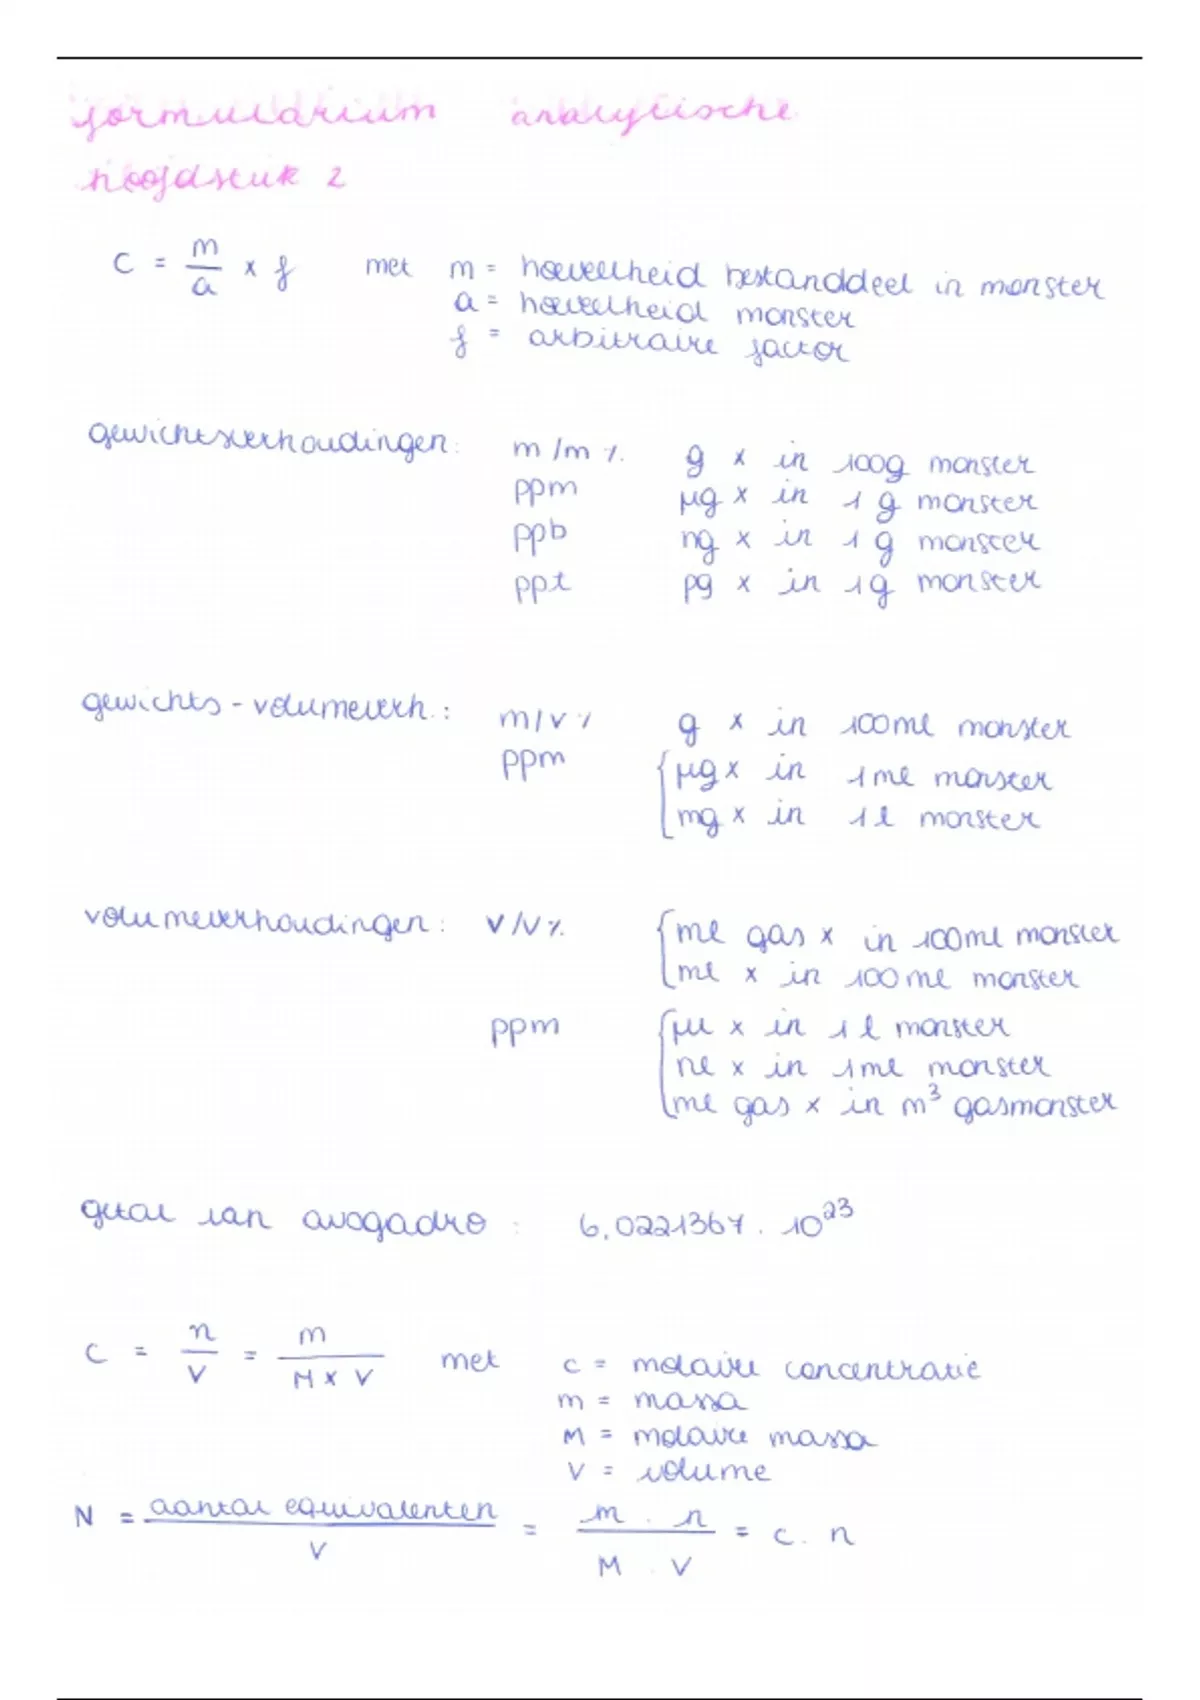 formularium analytische
hoofdstuk 2
C = m/a x f met m = hoeveelheid bestanddeel in monster
a = hoeveelheid monster
f = arbitraire factor
gewichtsverhoudingen: m/m % g x in 100g monster
ppm µg x in 1 g monster
ppb ng x in 1 g monster
ppt pg x in 1g monster
gewichts-volumeverh.: m/v % g x in 100ml monster
ppm { µg x in 1ml monster
mg x in 1l monster
volumeverhoudingen: V/V % { ml gas x in 100ml monster
ml x in 100ml monster
ppm { µl x in 1l monster
nl x in 1ml monster
ml gas x in m³ gasmonster
getal van avogadro : 6,0221367 . 10²³
c = n/V = m/(M x V) met c = molaire concentratie
m = massa
M = molaire massa
V = volume
N = aantal equivalenten/V = (m . n)/(M . V) = c . n